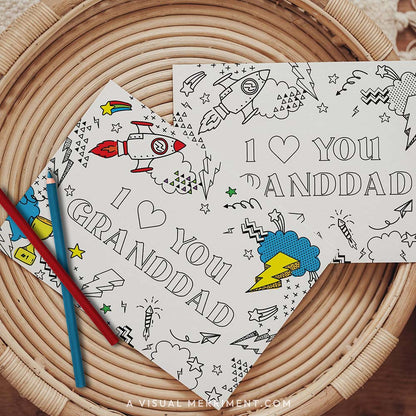 I ♡ YOU
GRANDDAD
I ♡ YOU
RANDDAD
#1
A VISUAL MERRIMENT.COM